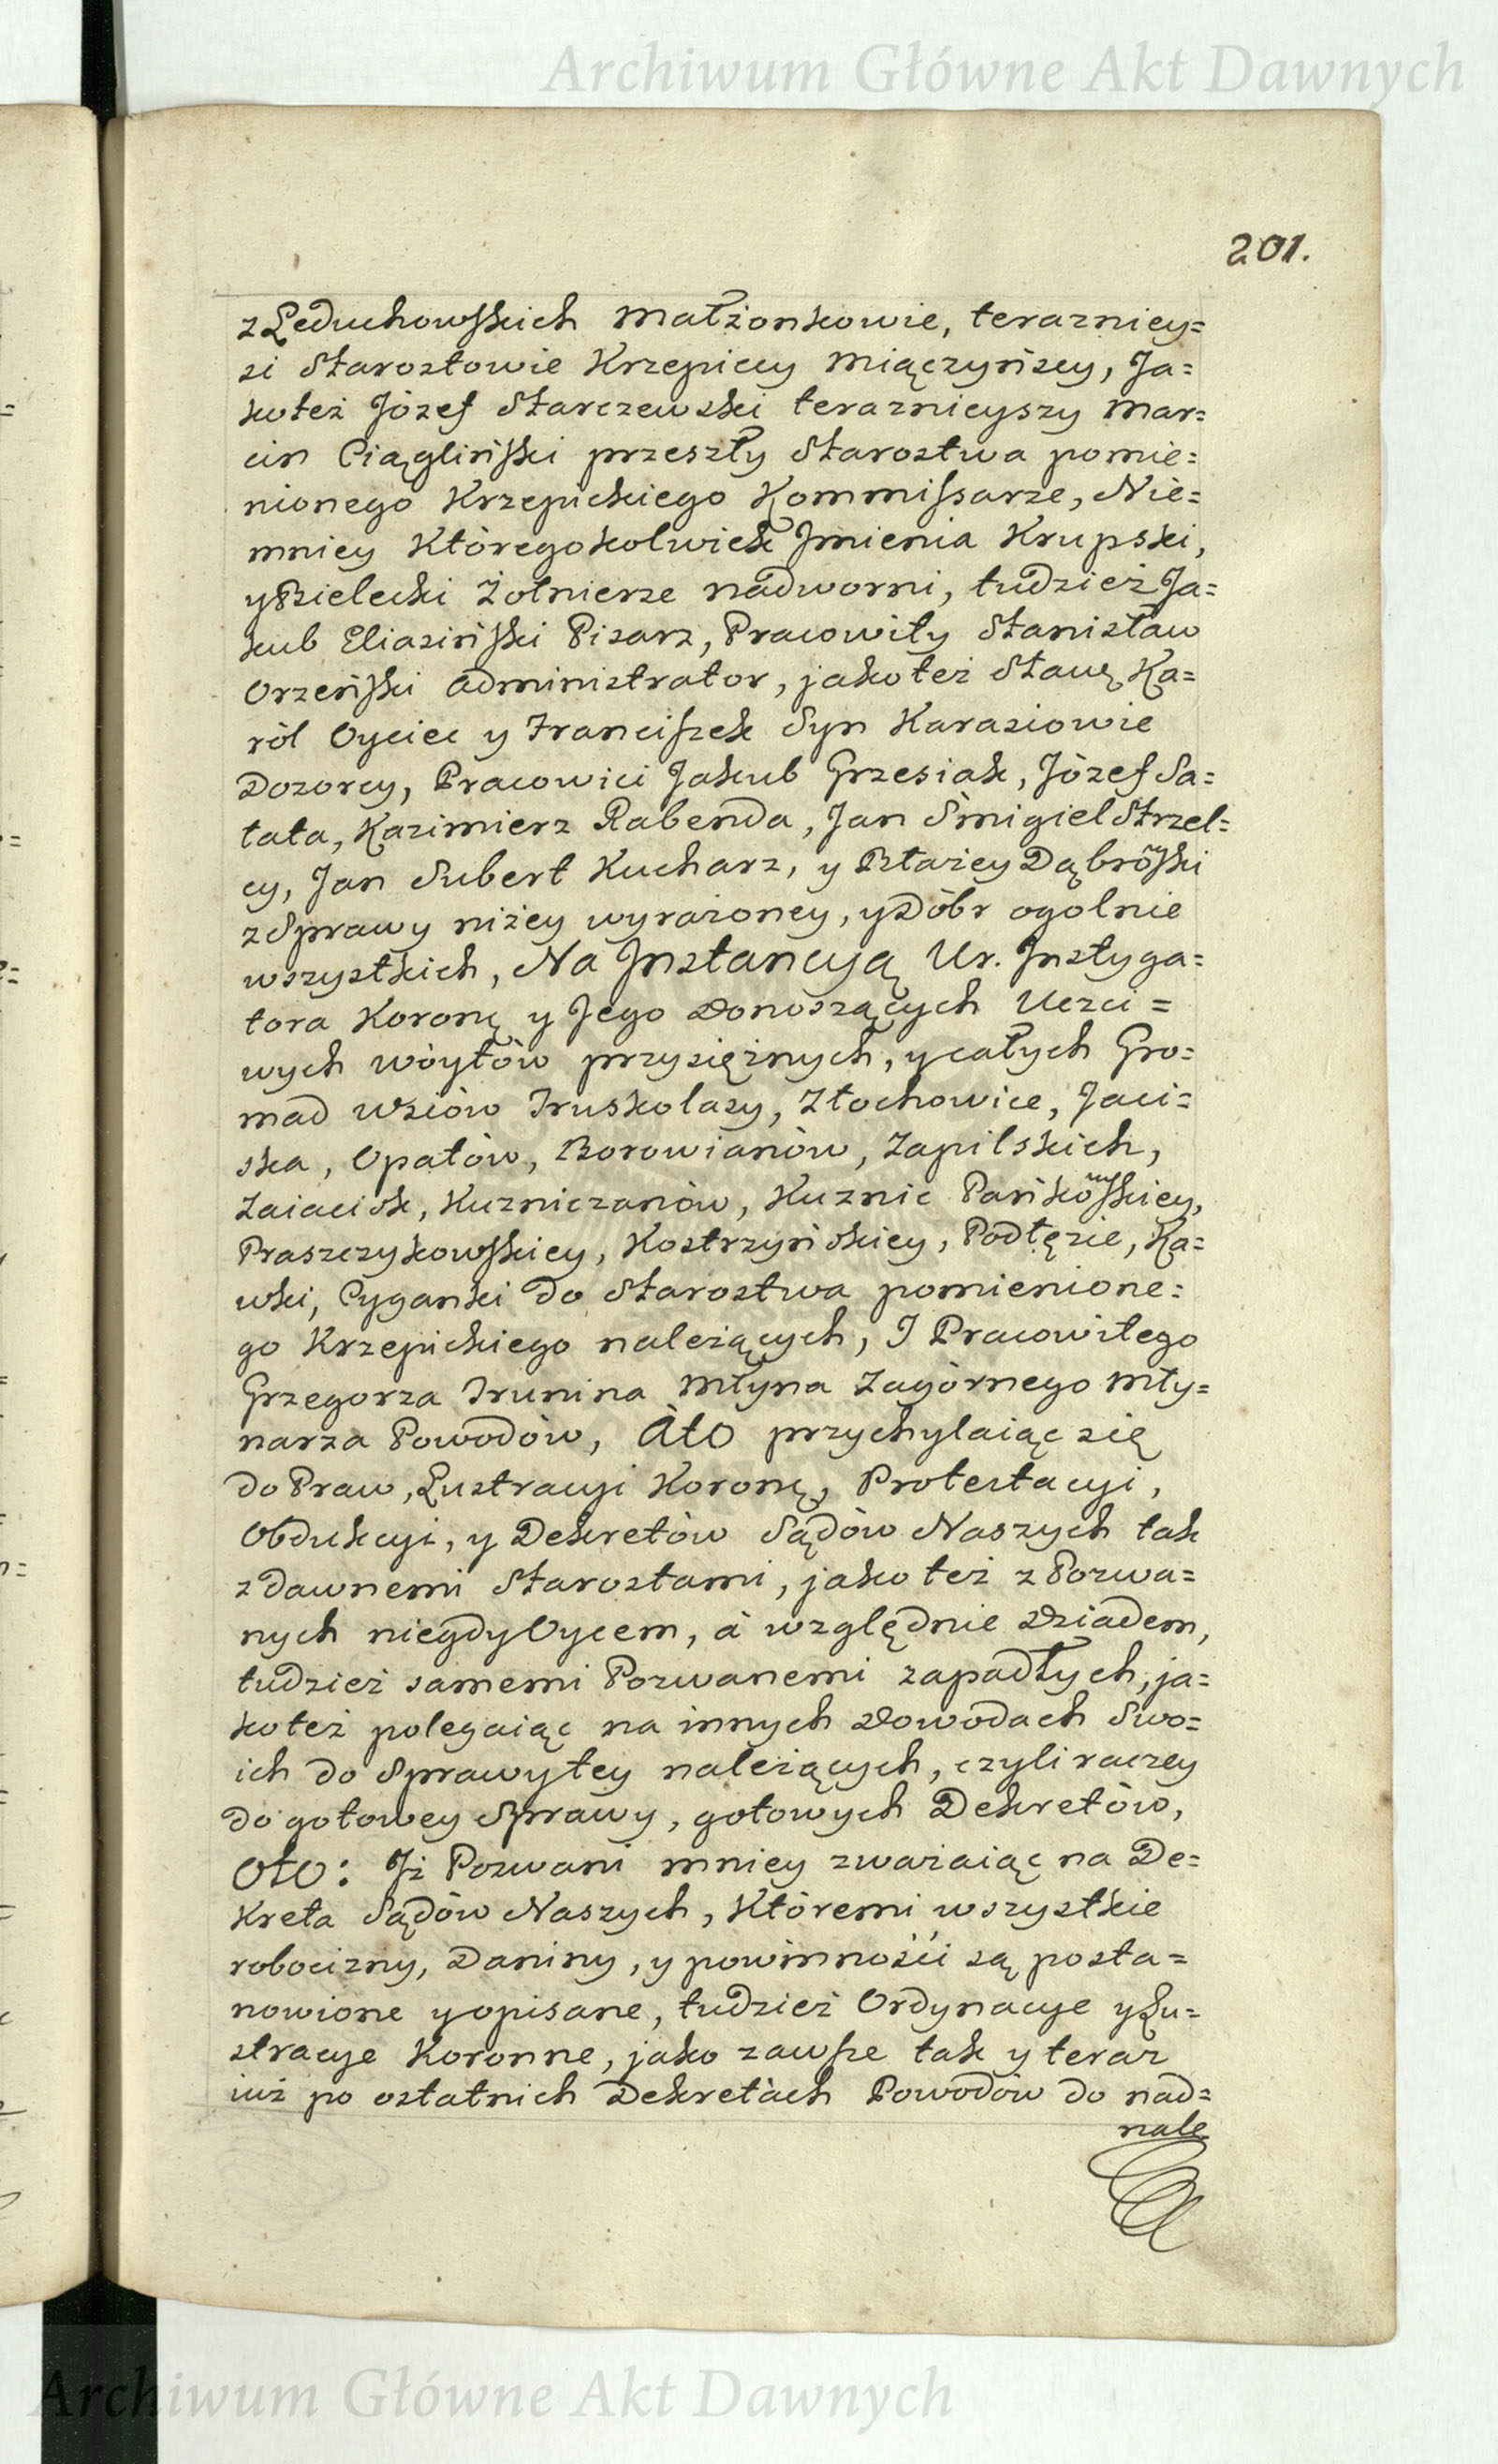 Archiwum Główne Akt Dawnych
201.
z Leduchowskich Małżonkowie, terazniey=
si Starostowie Krzepiccy Miączyńscy, Ja=
koteż Józef Starczewski teraznieyszy Mar=
cin Ciągliński przeszły Starostwa pomie=
nionego Krzepickiego Kommissarze, Nie=
mniey Któregokolwiek Jmienia Krupski,
y Bielecki Żołnierze nadworni, tudzież Ja=
kub Eliasiński Pisarz, Pracowity Stanisław
Orzeński Administrator, jako też Stawę Ka=
ról Oyciec y Franciszek Syn Karasiowie
Dozorcy, Pracowici Jakub Grzesiak, Józef Sa=
tata, Kazimierz Rabenda, Jan Śmigiel Strzel=
cy, Jan Subert Kucharz, y Błażey Dąbrowski
z Sprawy niżey wyrażoney, y Dóbr ogolnie
wszystkich, Na Jnstancyą Ur. Jnstyga=
tora Koronę y Jego Donoszących Uczci=
wych Wóytów przysiężnych, y całych Gro=
mad Wsiów Truskolasy, Złochowice, Jaci=
ska, Opatów, Borowianów, Zapilskich,
Zaiacisk, Kuzniczanów, Kuznic Pańkowskiey,
Praszczykowskiey, Kostrzyńskiey, Podłęzie, Ka=
wki, Cyganki do Starostwa pomienione=
go Krzepickiego należących, I Pracowitego
Grzegorza Trunina Młyna Zagórnego Mły=
narza Powodów, Àto przychylaiąc się
do Praw, Lustracyi Koronę, Protestacyi,
Obdukcyi, y Dekretów Sądów Naszych tak
z dawnemi Starostami, jako też z Pozwa=
nych niegdy Oycem, à względnie Dziadem,
tudzież samemi Pozwanemi zapadłych, ja=
koteż polegaiąc na innych Dowodach Swo=
ich do Sprawy tey należących, czyli raczey
do gotowey Sprawy, gotowych Dekretów,
Oto: Jż Pozwani mniey zważaiąc na De=
Kreta Sądów Naszych, Któremi wszystkie
robocizny, Daniny, y powinności są posta=
nowione y opisane, tudzież Ordynacye y Lu=
stracye Koronne, jako zawsze tak y teraz
iuż po ostatnich Dekretach Powodów do nad=
nale
Archiwum Główne Akt Dawnych